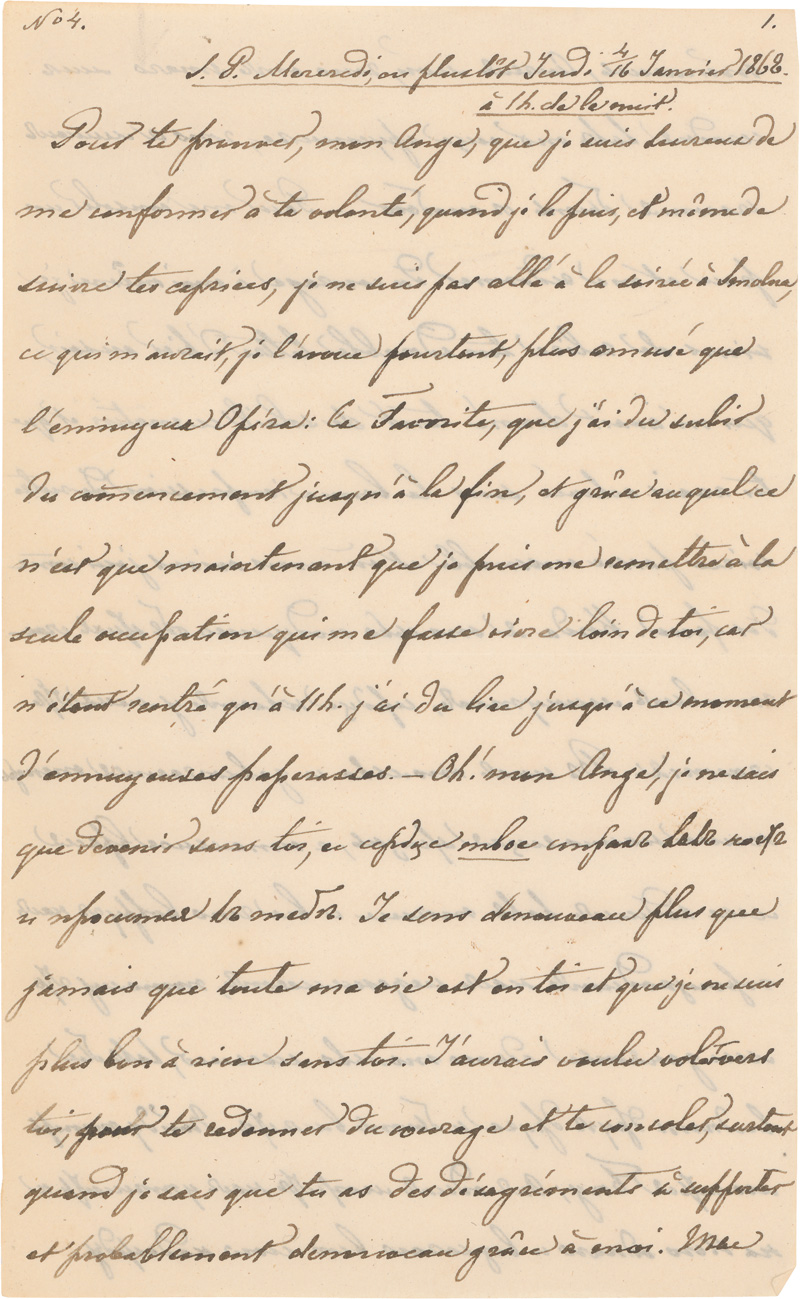 No 4.
1.
S. P. Mercredi, ou plustôt Jeudi 4/16 Janvier 1868.
à 1h. de la nuit.
Pour te prouver, mon Ange, que je suis heureux de
me conformer à ta volonté, quand je le puis, et même de
suivre tes caprices, je ne suis pas allé à la soirée à Smolna,
ce qui m'aurait, je l'avoue pourtant, plus amusé que
l'ennuyeux Opéra: la Favorite, que j'ai du subir
du comencement jusqu'à la fin, et grâce auquel ce
n'est que maintenant que je puis me remettre à la
seule occupation qui me fasse vivre loin de toi, car
n'étant rentré qu'à 11h. j'ai du lire jusqu'à ce moment
d'ennuyeuses paperasses. — Oh! mon Ange, je ne sais
que devenir sans toi, и сердце мое
и просится къ тебѣ. Je sens denouveau plus que
jamais que toute ma vie est en toi et que je ne suis
plus bon à rien sans toi. J'aurais voulu voler vers
toi, pour te redonner du courage et te consoler, surtout
quand je sais que tu as des désagréments à supporter
et probablement denouveau grâce à moi. Mae